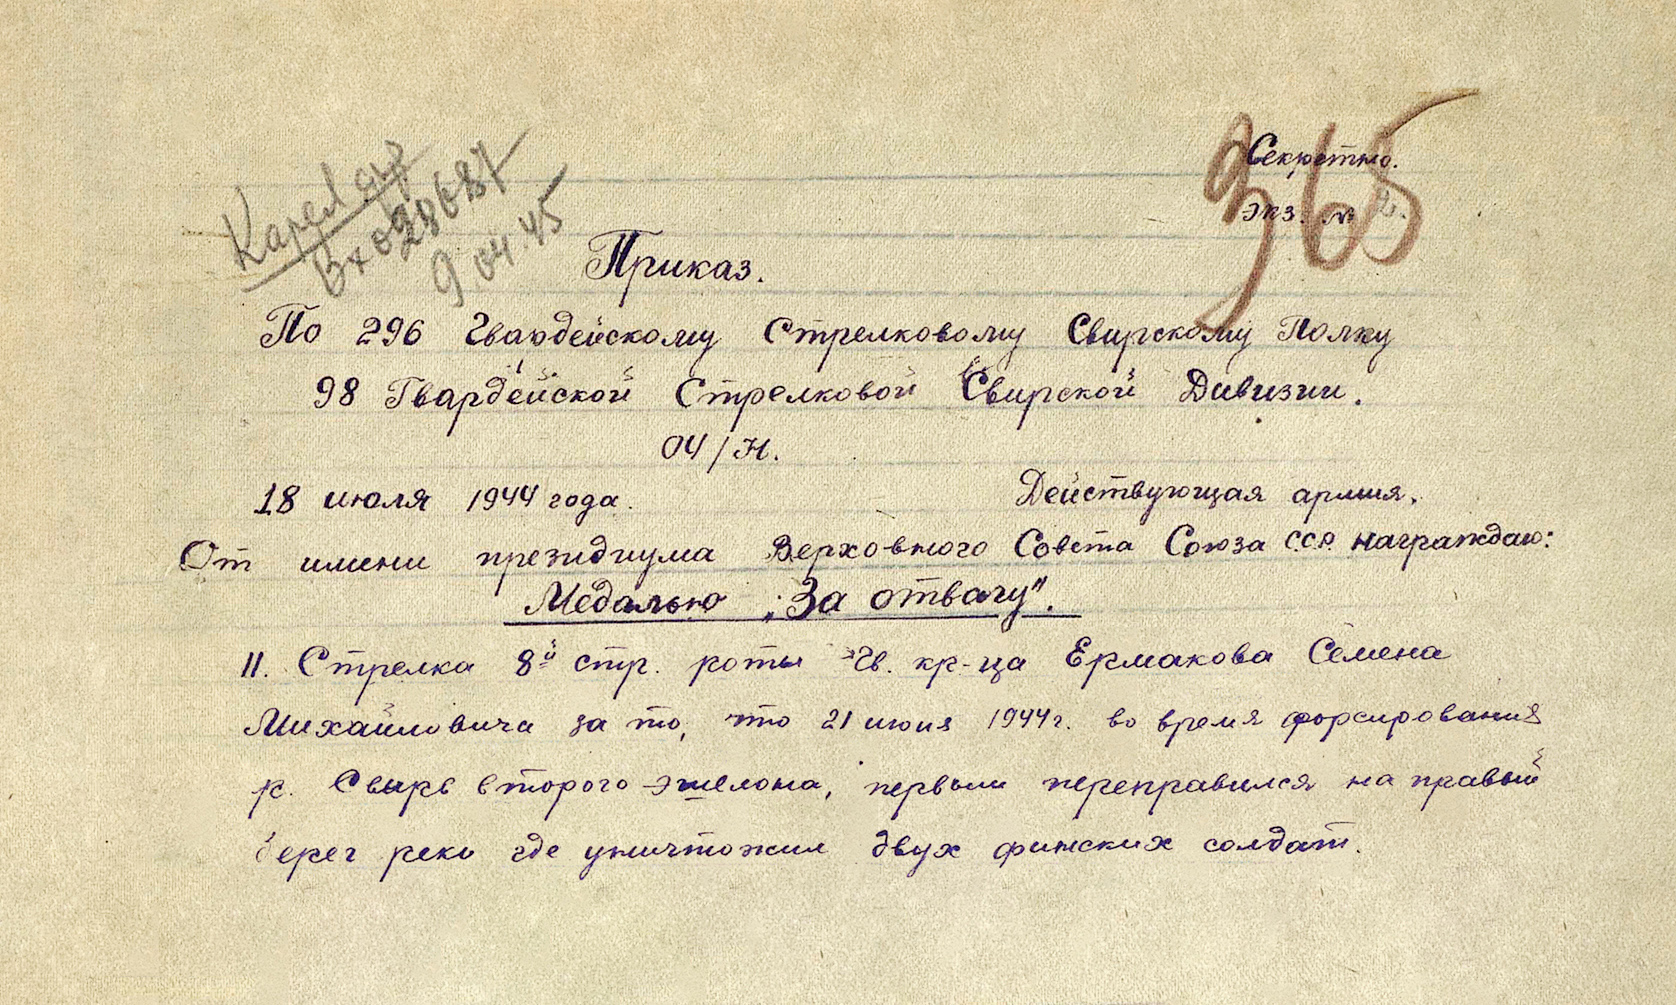 Секретно.
экз. № 2.
365
Карел фр
Вх 028687
9 04.45
Приказ.
По 296 Гвардейскому Стрелковому Свирскому Полку
98 Гвардейской Стрелковой Свирской Дивизии.
04/Н.
18 июля 1944 года. Действующая армия.
От имени президиума Верховного Совета Союза ССР награждаю:
Медалью „За отвагу".
11. Стрелка 8й стр. роты Гв. кр-ца Ермакова Семена
Михайловича за то, что 21 июня 1944г. во время форсирования
р. Свирь второго эшелона, первым переправился на правый
берег реки где уничтожил двух финских солдат.